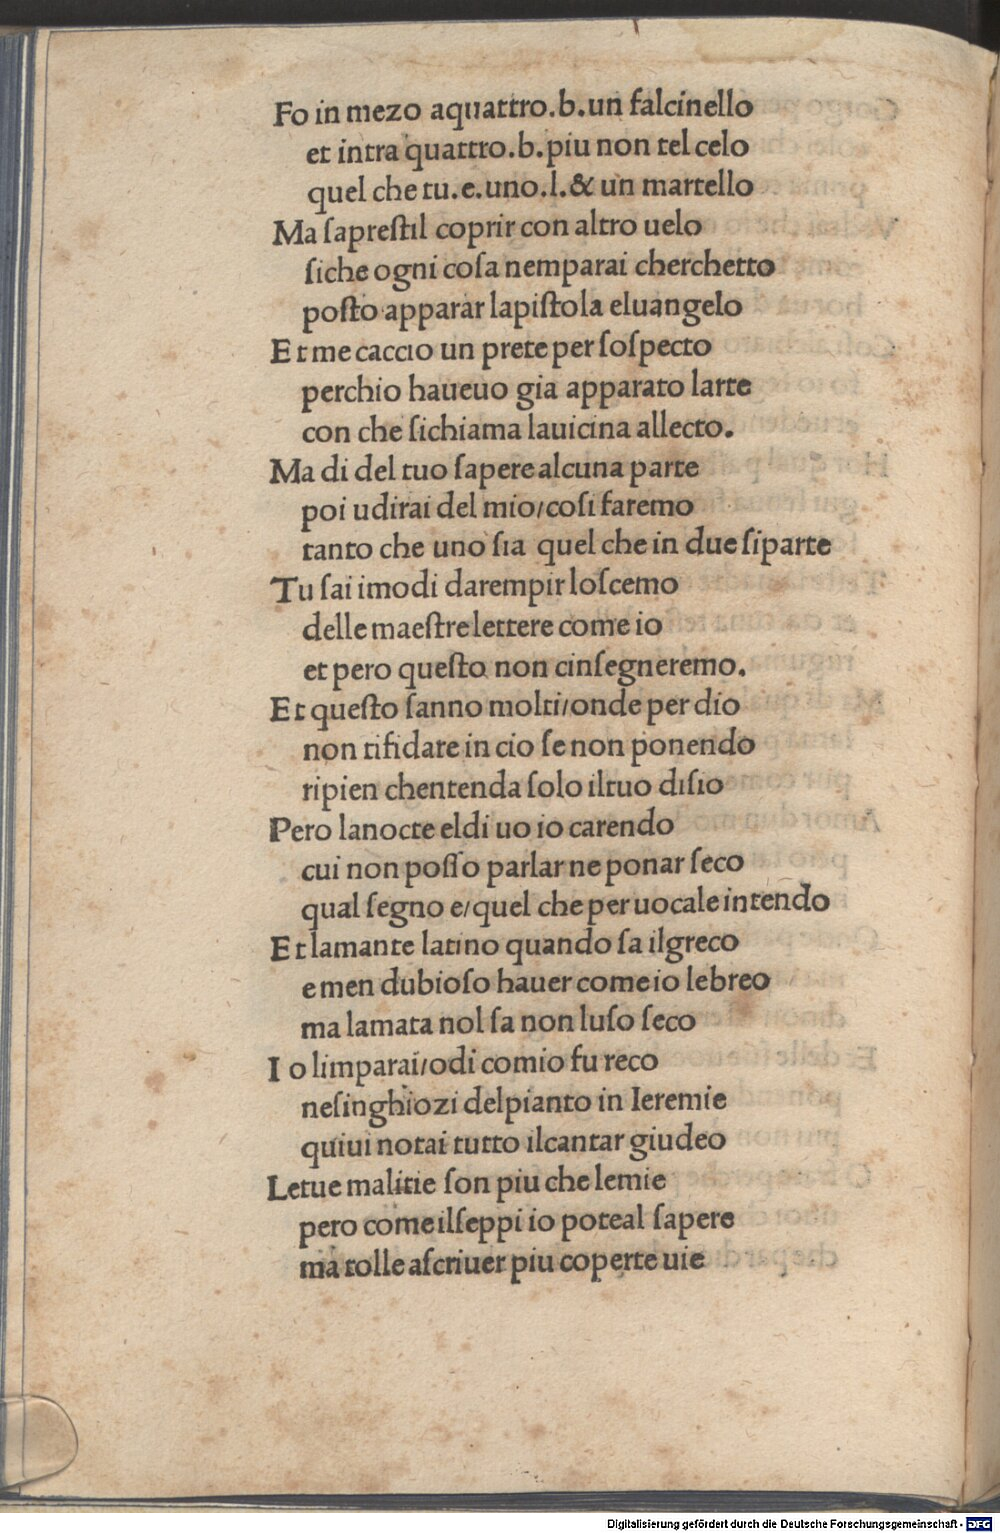 Fo in mezo aquattro.b.un falcinello
et intra quattro.b.piu non tel celo
quel che tu.e.uno.l.& un martello
Ma ſapreſtil coprir con altro uelo
ſiche ogni coſa nemparai cherchetto
poſto apparar lapiſtola eluangelo
Et me caccio un prete per ſoſpecto
perchio haueuo gia apparato larte
con che ſichiama lauicina allecto.
Ma di del tuo ſapere alcuna parte
poi udirai del mio/coſi faremo
tanto che uno ſia quel che in due ſiparte
Tu ſai imodi darempir loſcemo
delle maeſtre lettere come io
et pero queſto non cinſegneremo.
Et queſto ſanno molti/onde per dio
non tifidare in cio ſe non ponendo
ripien chentenda ſolo iltuo diſio
Pero lanocte eldi uo io carendo
cui non poſſo parlar ne ponar ſeco
qual ſegno e/quel che per uocale intendo
Et lamante latino quando ſa ilgreco
e men dubioſo hauer come io lebreo
ma lamata nol ſa non luſo ſeco
I o limparai/odi comio fu reco
neſinghiozi delpianto in Ieremie
quiui notai tutto ilcantar giudeo
Letue malitie ſon piu che lemie
pero come ilſeppi io poteal ſapere
ma tolle aſcriuer piu coperte uie
Digitalisierung gefördert durch die Deutsche Forschungsgemeinschaft - DFG